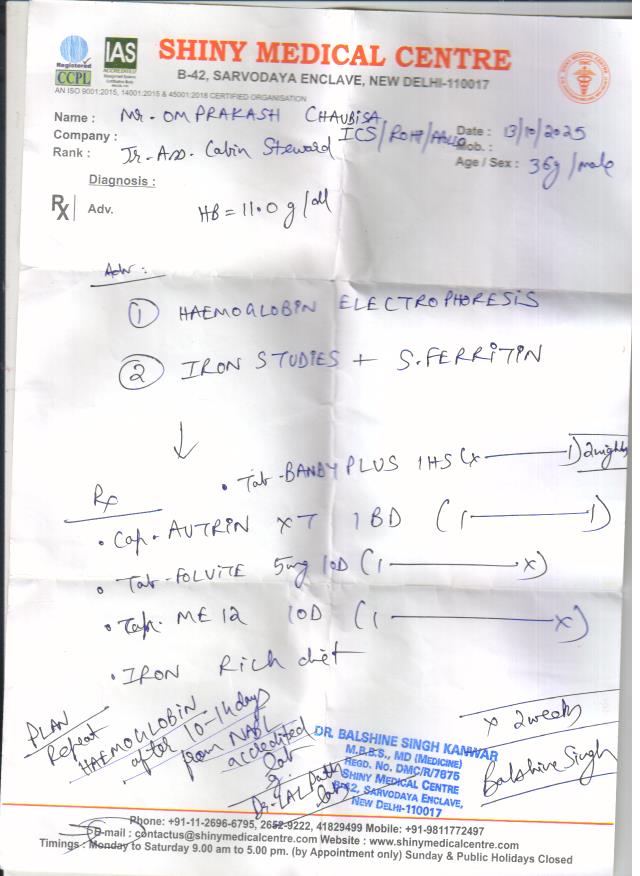 Registered
CCPL
IAS
ACCREDITED
SHINY MEDICAL CENTRE
B-42, SARVODAYA ENCLAVE, NEW DELHI-110017
AN ISO 9001:2015, 14001:2015 & 45001:2018 CERTIFIED ORGANISATION
Name : Mr. OM PRAKASH CHAUBISA
Company : ICS/ROHF/ Date : 13/10/2025
Mob. :
Rank : Jr. Ass. Cabin Steward Age / Sex : 36y /male
Diagnosis :
Rx Adv. HB = 11.0 g/dl
Adv :
① HAEMOGLOBIN ELECTROPHORESIS
② IRON STUDIES + S. FERRITIN
↓
• Tab - BANDY PLUS 1HS (x —— 1) 2 nights
Rx
• Cap. AUTRIN XT 1BD (1 —— 1)
• Tab - FOLVITE 5mg 1OD (1 —— x)
• ME 12 1OD (1 —— x)
• IRON Rich diet
x 2 weeks
PLAN
Repeat HAEMOGLOBIN
after 10-14 days
from NABL
accredited
lab
Dr. LAL Path
lab
DR. BALSHINE SINGH KANWAR
M.B.B.S., MD (MEDICINE)
REGD. NO. DMC/R/7875
SHINY MEDICAL CENTRE
B-42, SARVODAYA ENCLAVE,
NEW DELHI-110017
Balshine Singh
Phone: +91-11-2696-6795, 2652-9222, 41829499 Mobile: +91-9811772497
E-mail : contactus@shinymedicalcentre.com Website : www.shinymedicalcentre.com
Timings : Monday to Saturday 9.00 am to 5.00 pm. (by Appointment only) Sunday & Public Holidays Closed